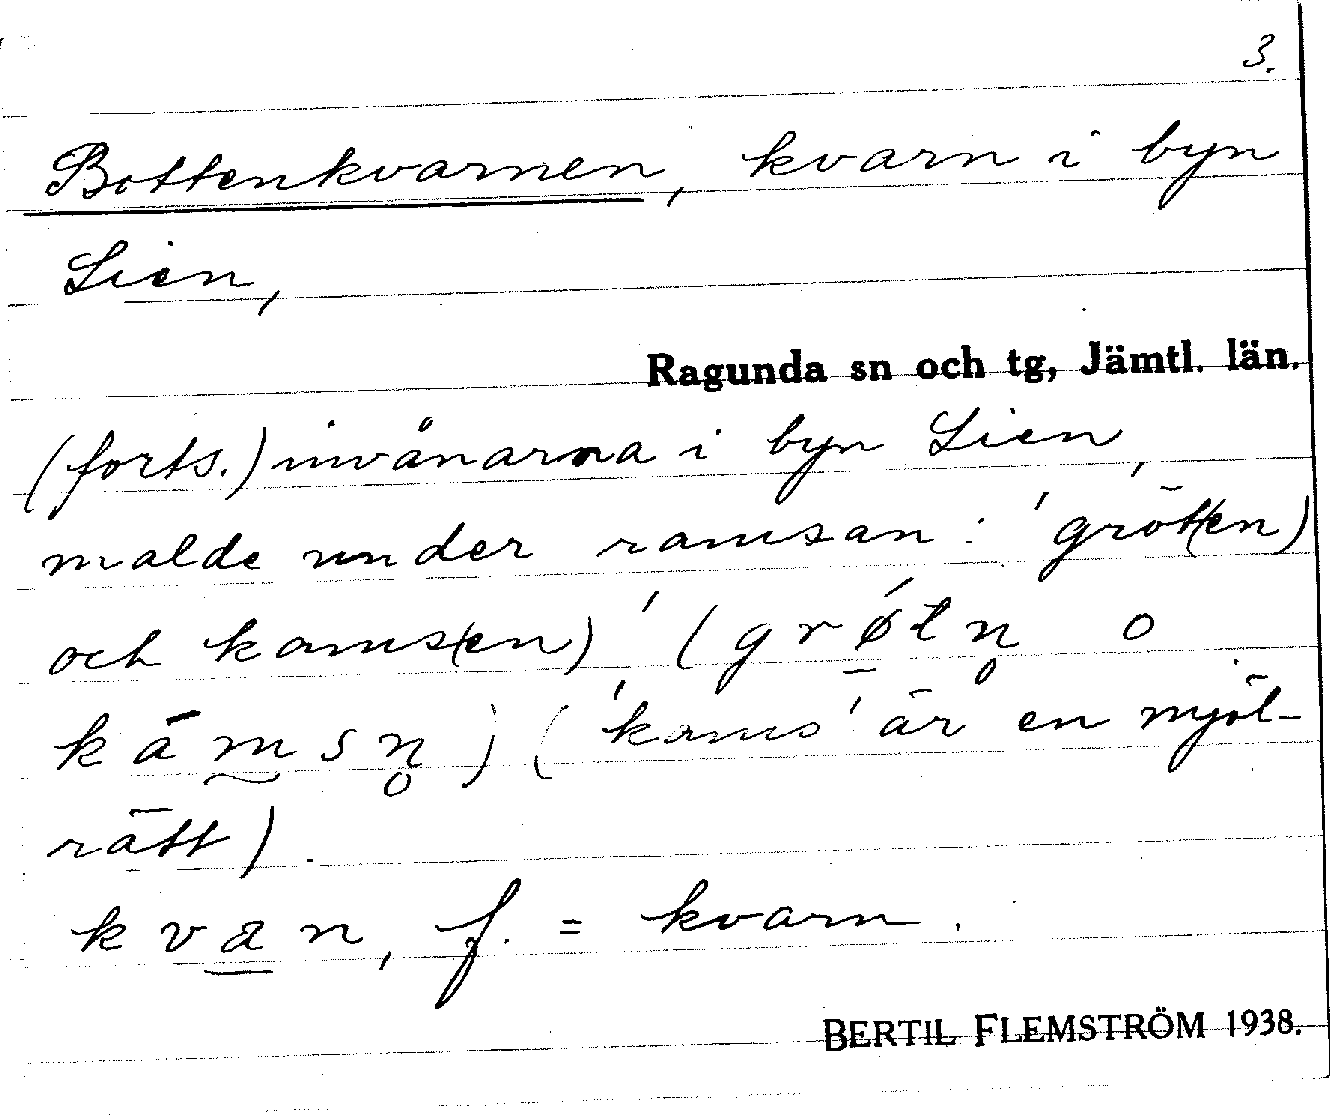 3.
Bottenkvarnen, kvarn i byn
Lien,
Ragunda sn och tg, Jämtl. län.
(forts.) invånarna i byn Lien,
malde under ramsan: 'gröt(en)
och kams(en)' (grǿ̱tn̥ o
kām̰sn̥) ('kams' är en mjöl-
rätt).
kva̱n, f. = kvarn.
BERTIL FLEMSTRÖM 1938.